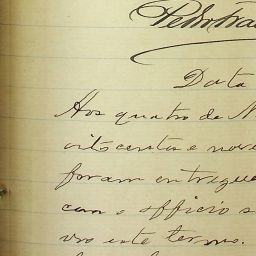 Pedro
Data
Aos quatro de N
oitocentos e nove
foram entregue
com o officio s
vro este termo.